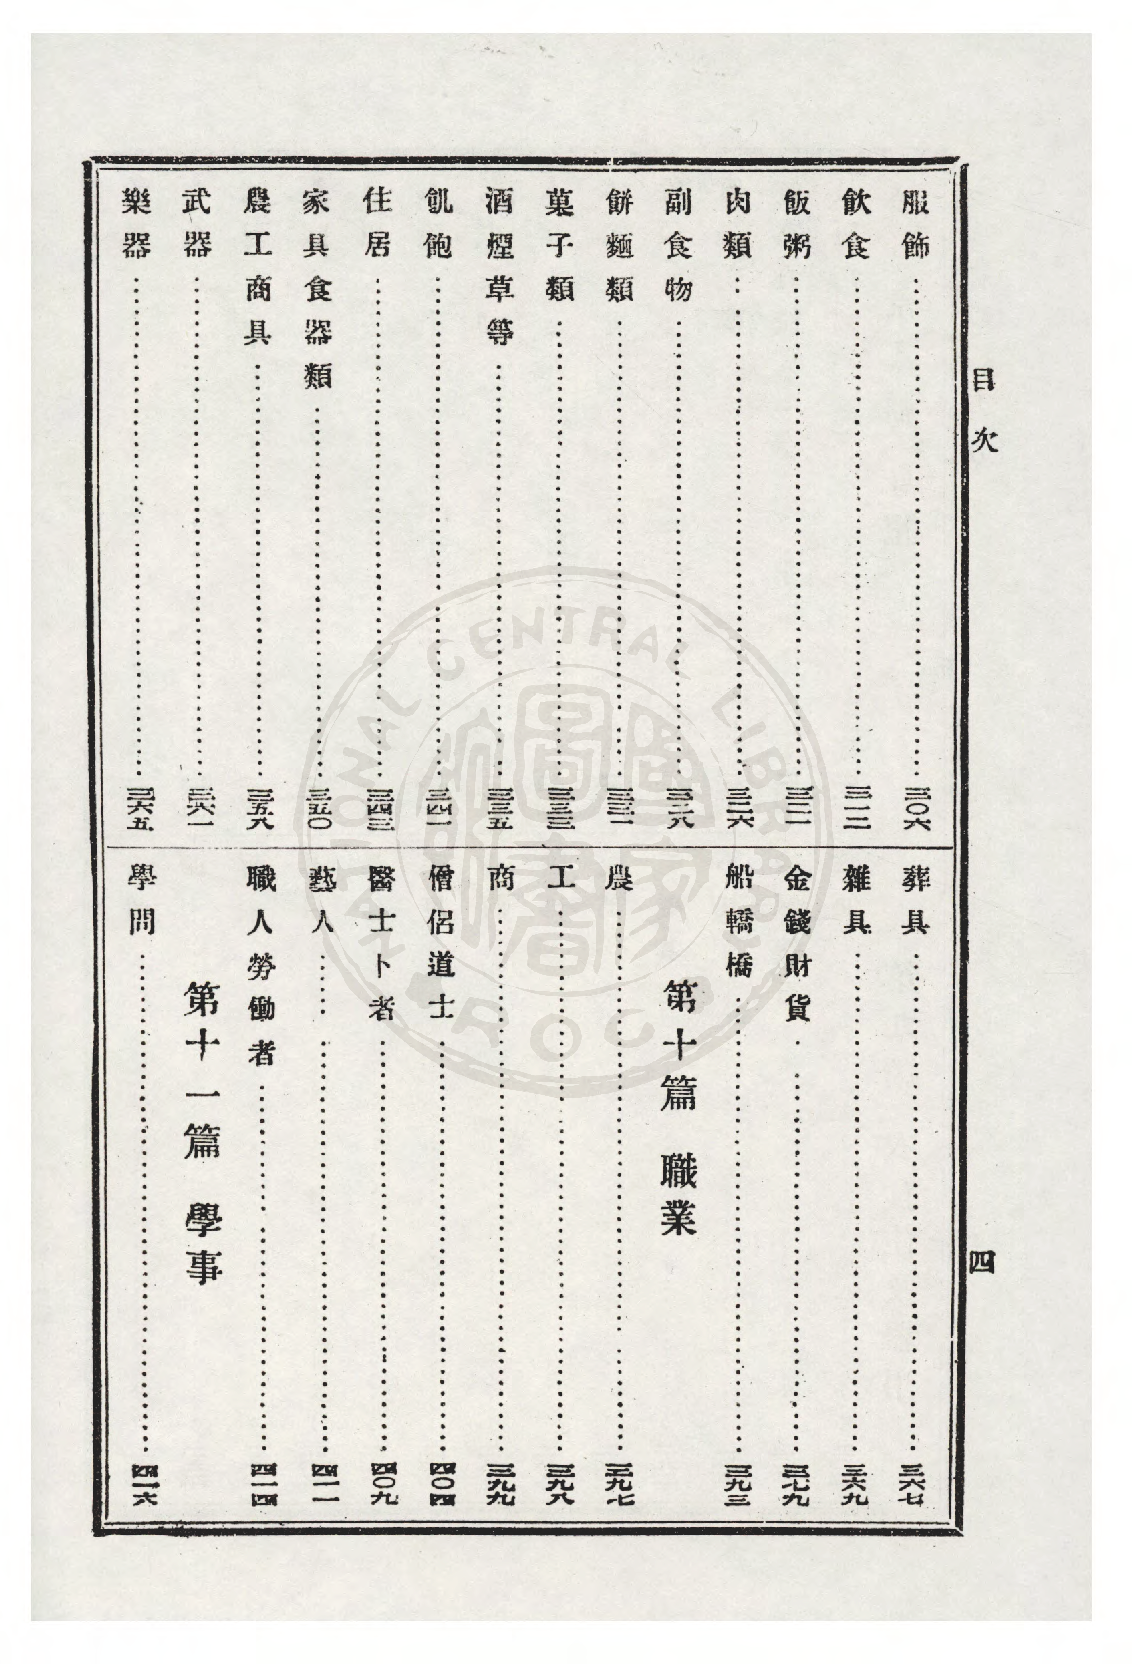 目次
四
服飾……三〇六
飲食……三一二
飯粥……三二二
肉類……三二六
副食物……三二八
餅麵類……三三一
菓子類……三三三
酒煙草等……三三五
飢飽……三四一
住居……三四三
家具食器類……三五〇
農工商具……三五八
武器……三六一
樂器……三六五
葬具……三六七
雜具……三六九
金錢財貨……三七九
船轎橋……三九三
第十篇 職業
農……三九七
工……三九八
商……三九九
僧侶道士……四〇四
醫士卜者……四〇九
藝人……四一一
職人勞働者……四一四
第十一篇 學事
學問……四一六
NATIONAL CENTRAL LIBRARY
R.O.C.
國家圖書館